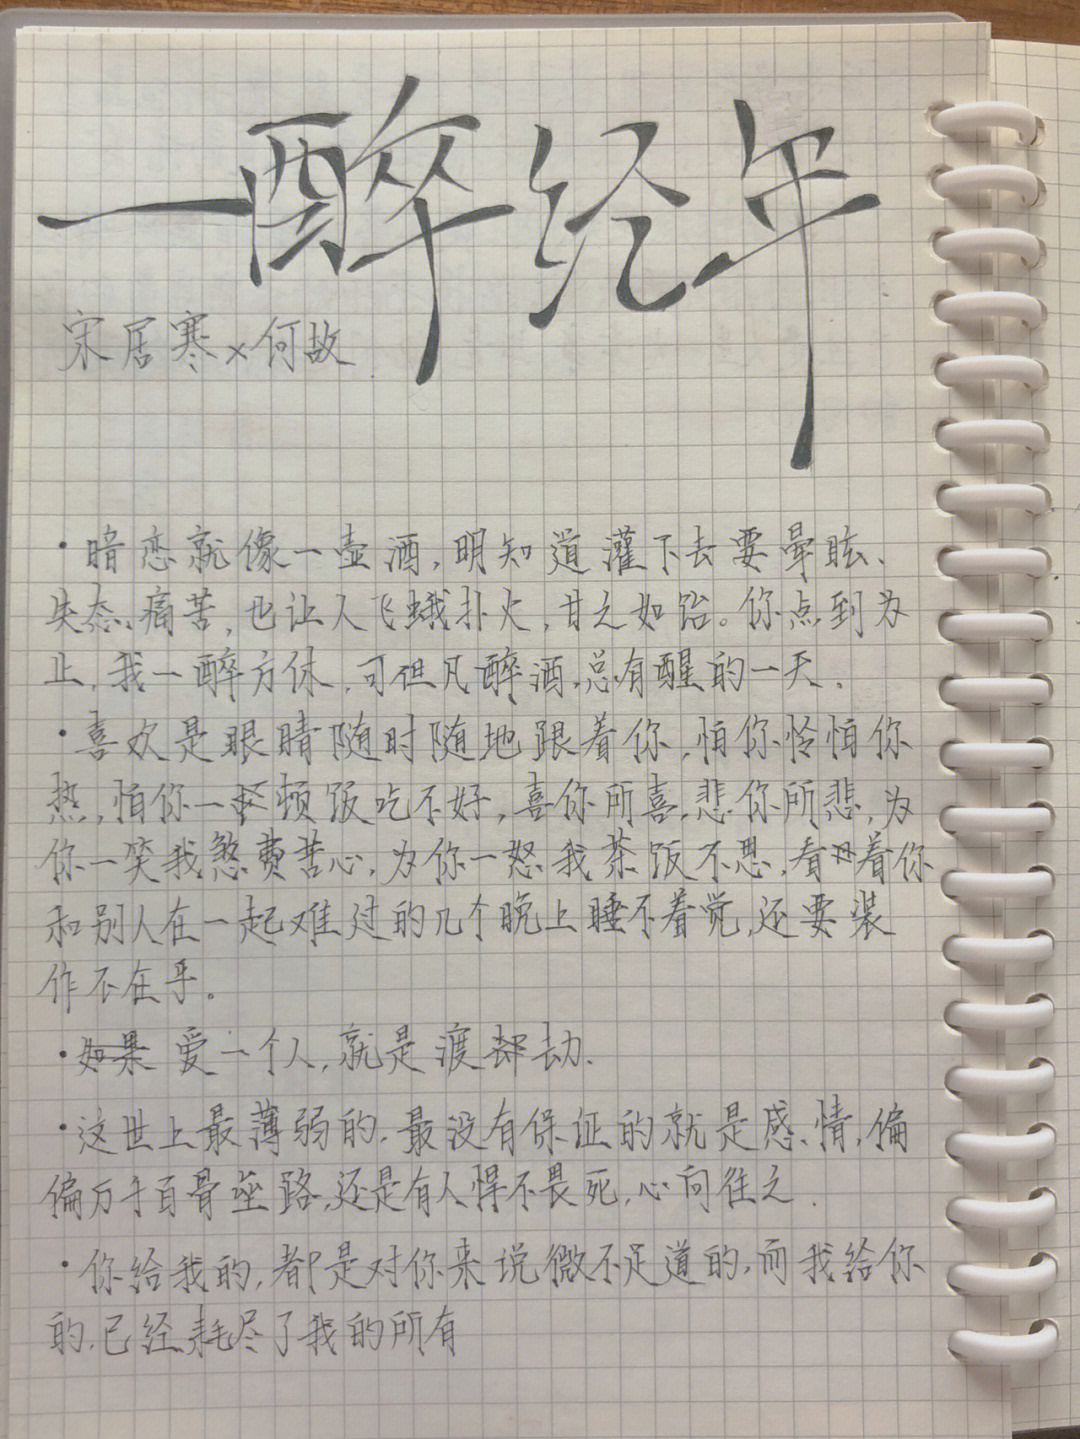 一醉经年
宋居寒×何故
·暗恋就像一壶酒,明知道灌下去要晕眩、
失态、痛苦,也让人飞蛾扑火,甘之如饴。你点到为
止,我一醉方休,可但凡醉酒,总有醒的一天.
·喜欢是眼睛随时随地跟着你,怕你怜怕你
热,怕你一顿饭吃不好,喜你所喜,悲你所悲,为
你一笑我煞费苦心,为你一怒我茶饭不思,看着你
和别人在一起难过的几个晚上睡不着觉,还要装
作不在乎。
·如果 爱一个人,就是渡劫.
·这世上最薄弱的,最没有保证的就是感情,偏
偏万千百骨垒路,还是有人悍不畏死,心向往之.
·你给我的,都是对你来说微不足道的,而我给你
的,已经耗尽了我的所有